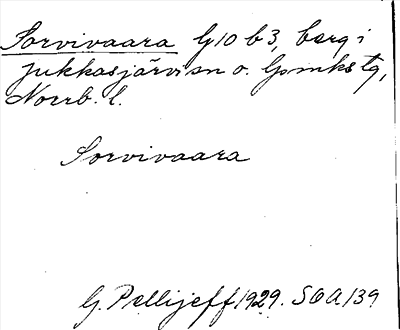 Sorvivaara G10 b3, berg i
Jukkasjärvi sn o. Gmks tg,
Norrb. l.
Sorvivaara
G. Pellijeff 1929. SOA 139